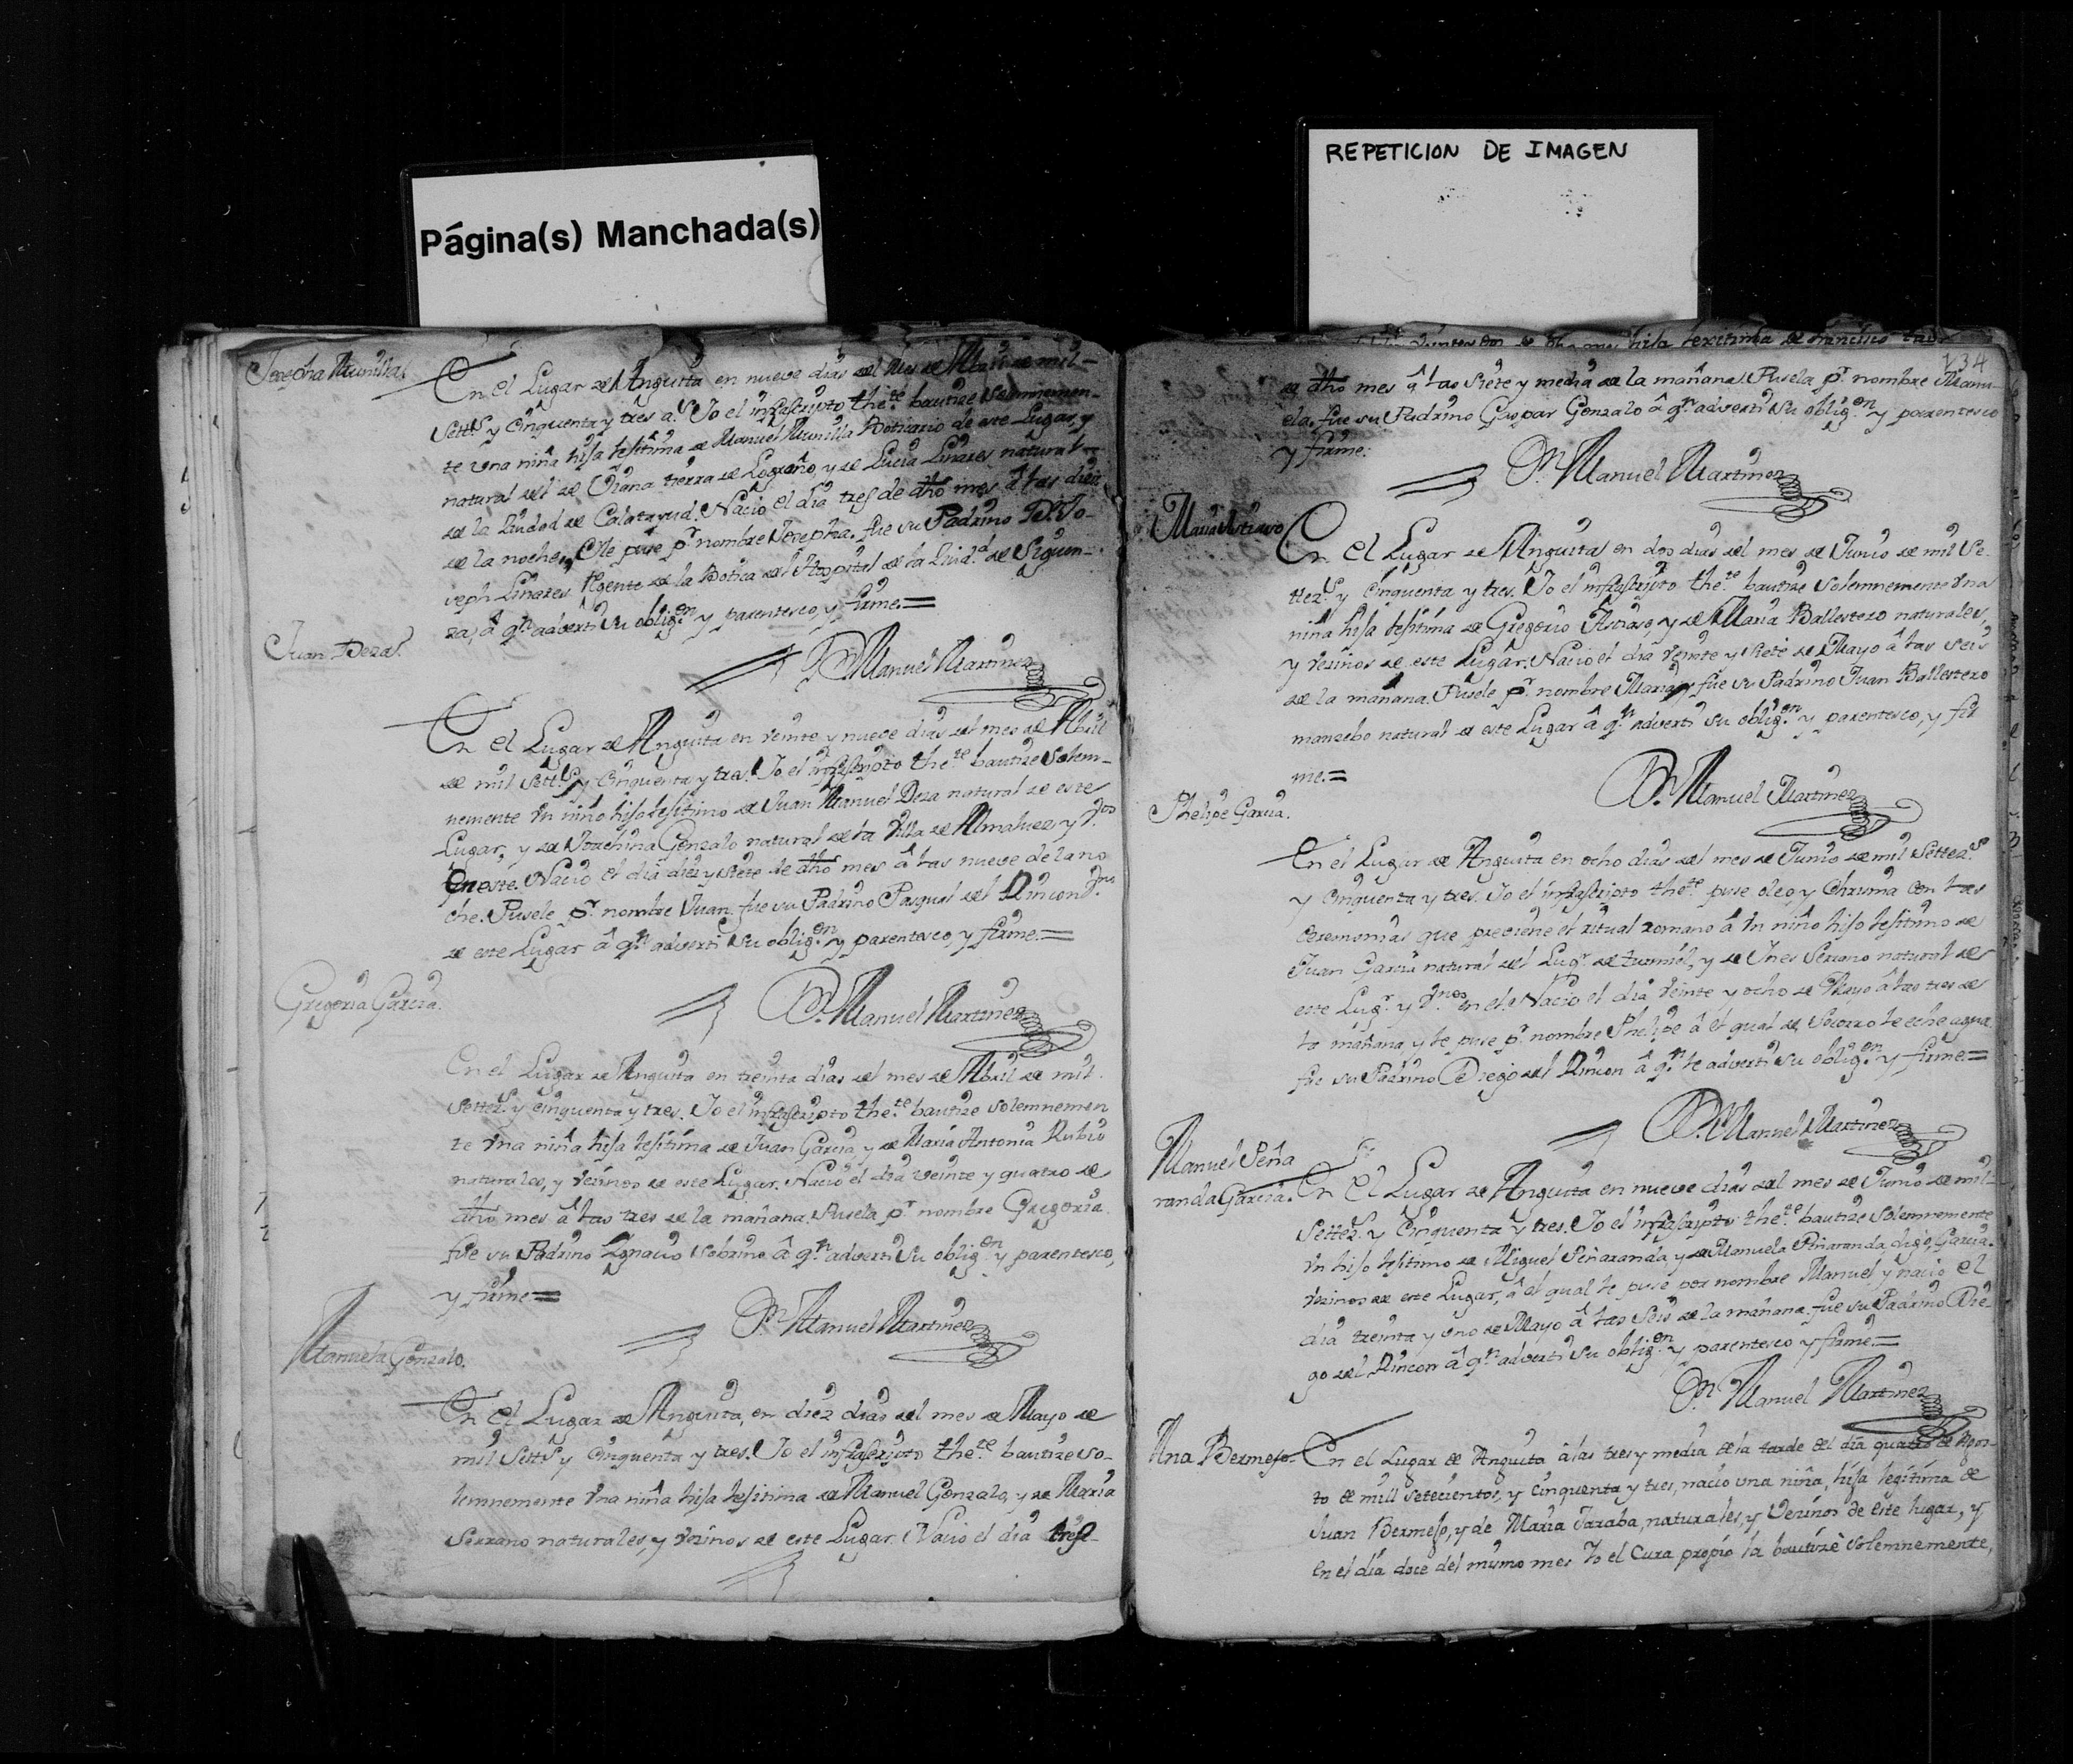 Página(s) Manchada(s)
REPETICION DE IMAGEN
Josepha Munilla.
En el Lugar de Anguita en nueve dias del Mes de Abril de mil
Setts. y Cinquenta y tres as. Yo el infrascripto the.te bautize Solemnemen-
te Una niña hija lesitima de Manuel Munilla Boticario de este Lugar, y
natural de la de Viana tierra de Logroño, y de Lucia Linares natural
de la Ciudad de Calatayud. Nacio el dia tres de dho mes â las diez
de la noche, Ole puse pr. nombre Josepha. fue su Padrino Dn. Jo-
seph Linares Regente de la Botica del Hospital de la Ciud.d de Siguen-
za, â qn. adverti su oblig.on y parentesco, y firme.=
Dn. Manuel Martinez
Juan Deza.
En el Lugar de Anguita en veinte y nueve dias del mes de Abril
de mil Setts. y Cinquenta y tres. Yo el infrascripto the.te bautize Solem-
nemente Un niño hijo lesitimo de Juan Manuel Deza natural de este
Lugar, y de Joachina Gonzalo natural de la Villa de Almaluez y V.nos
en este. Nacio el dia diez y siete de dho mes â las nueve de la no
che. Pusele pr. nombre Juan, fue su Padrino Pasqual del Rincon V.no
de este Lugar â qn. adverti su oblig.on y parentesco, y firme.=
Dn. Manuel Martinez
Gregoria Garcia.
En el Lugar de Anguita en treinta dias del mes de Abril de mil
Settezs. y Cinquenta y tres. Yo el infrascripto the.te bautize Solemnemen
te Vna niña hija lesitima de Juan Garcia, y de Maria Antonia Rubio
naturales, y Vezinos de este Lugar. Nacio el dia veinte y quatro de
dho mes â las tres de la mañana. Pusela pr. nombre Gregoria.
fue su Padrino Ygnacio Sobrino â qn. adverti su oblig.on y parentesco,
y firme=
Dn. Manuel Martinez
Manuela Gonzalo.
En el Lugar de Anguita, en diez dias del mes de Mayo de
mil Setts. y Cinquenta y tres. Yo el infrascripto the.te bautize so-
lemnemente Vna niña hija lesitima de Manuel Gonzalo, y de Maria
Serrano naturales, y Vezinos de este Lugar. Nacio el dia tres
134
de dho mes â las siete y media de la mañana. Pusela pr. nombre Manu-
ela. fue su Padrino Gaspar Gonzalo â qn. adverti su oblig.on y parentesco
y firme:
Dn. Manuel Martinez
Maria Astasio
En el Lugar de Anguita en dos dias del mes de Junio de mil Se-
ttezs. y Cinquenta y tres. Yo el infrascripto the.te bautize Solemnemente Vna
niña hija lesitima de Gregorio Astaso, y de Maria Ballestero naturales,
y Vezinos de este Lugar. Nacio el dia Veinte y siete de Mayo â las seis
de la mañana. Pusele pr. nombre Maria, y fue su Padrino Juan Ballestero
manzebo natural de este Lugar â qn. adverti su oblig.on y parentesco, y fir
me.=
Dn. Manuel Martinez
Phelipe Garcia.
En el Lugar de Anguita en ocho dias del mes de Junio de mil Settezs.
y Cinquenta y tres. Yo el infrascripto the.te puse oleo, y Chrisma con las
ceremonias que previene el ritual romano â Vn niño hijo lesitimo de
Juan Garcia natural del Lugr. de turmiel, y de Ines Serrano natural de
este Lugr. y V.nos en el. Nacio el dia Veinte y ocho de Mayo â las tres de
la mañana y le puse pr. nombre Phelipe â el qual de Socorro le eche agua.
fue su Padrino Diego del Rincon â qn. le adverti su oblig.on y firme.=
Dn. Manuel Martinez
Manuel Peña
randa Garcia.
En el Lugar de Anguita en nueve dias del mes de Junio de mil
Settezs. y Cinquenta y tres. Yo el infrascripto the.te bautize Solemnemente
Vn hijo lesitimo de Miguel Peñaranda, y de Manuela Peñaranda, digo, Garcia.
Vezinos de este Lugar, â el qual le puse por nombre Manuel y nacio el
dia treinta y uno de Mayo â las Seis de la mañana. fue su Padrino Die-
go del Rincon â qn. adverti su oblig.on y parentesco y firme=
Dn. Manuel Martinez
Ana Bermejo.
En el Lugar de Anguita â las tres y media de la tarde del dia quatro de Agos-
to de mill setecientos, y cinquenta y tres, nacio una niña, hija legitima de
Juan Bermejo, y de Maria Taraba, naturales, y Vezinos de este lugar, y
en el dia doce del mismo mes Yo el Cura propio la bautizè solemnemente,